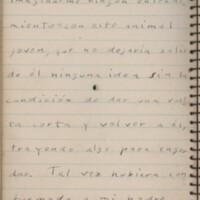 imaginarme ningún entendi-
miento con este animal
joven, que no dejaría salir
de él ninguna idea sin la
condición de dar una vuel-
ta corta y volver a él,
trayendo algo para engor-
dar. Tal vez hubiera con-
a mi padre